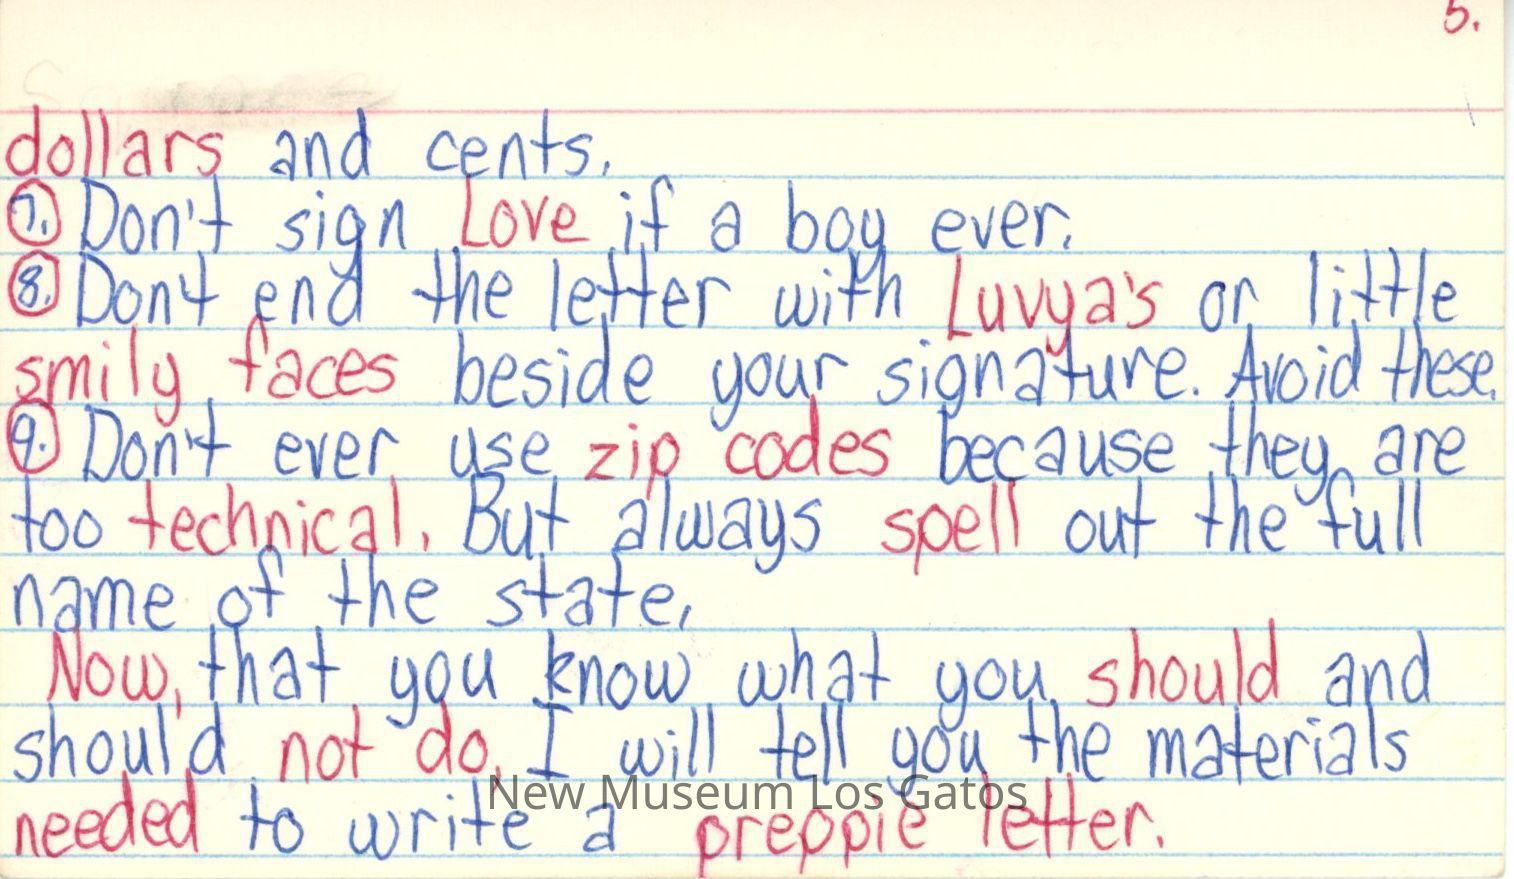 5.
dollars and cents.
7. Don't sign Love if a boy ever.
8. Don't end the letter with Luvya's or little
smily faces beside your signature. Avoid these.
9. Don't ever use zip codes because they are
too technical. But always spell out the full
name of the state.
Now, that you know what you should and
should not do, I will tell you the materials
needed to write a preppie letter.
New Museum Los Gatos